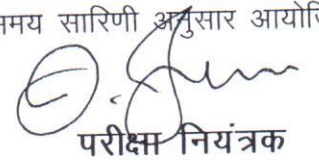 समय सारिणी अनुसार
परीक्षा नियंत्रक